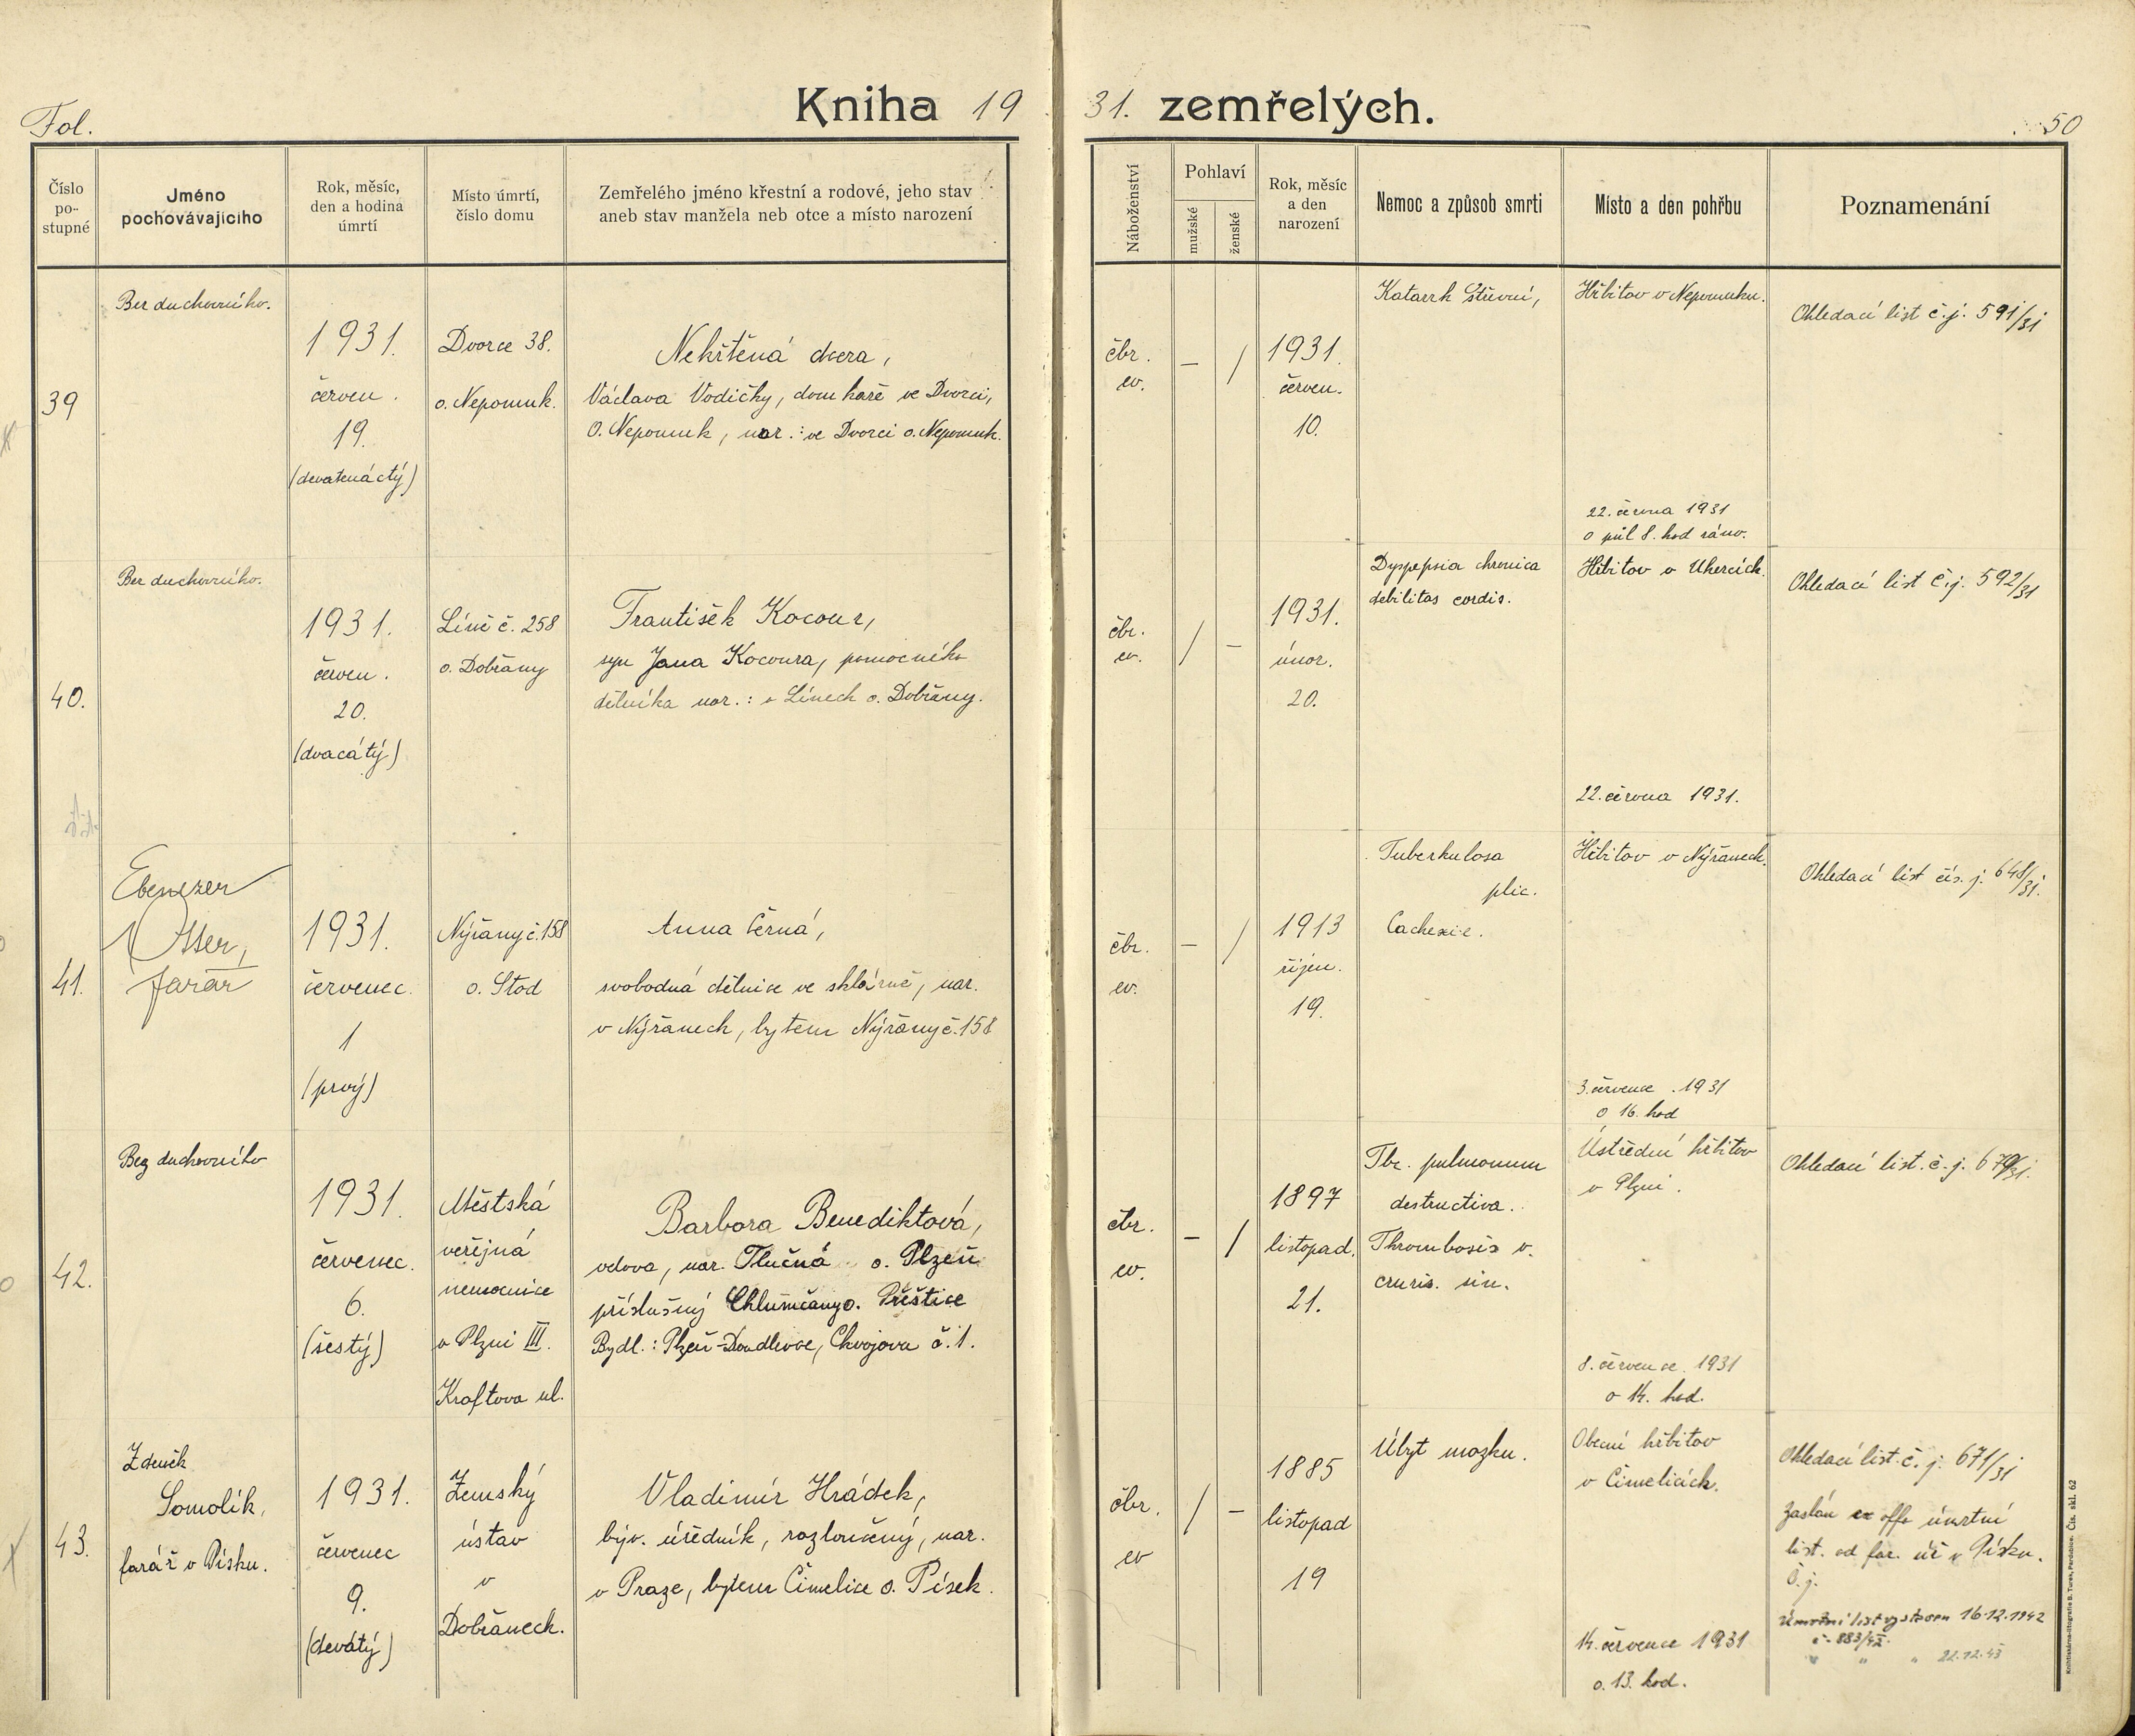 Fol.
Kniha 1931. zemřelých.
50
Číslo po-stupné
Jméno pochovávajícího
Rok, měsíc, den a hodina úmrtí
Místo úmrtí, číslo domu
Zemřelého jméno křestní a rodové, jeho stav aneb stav manžela neb otce a místo narození
Náboženství
Pohlaví
mužské
ženské
Rok, měsíc a den narození
Nemoc a způsob smrti
Místo a den pohřbu
Poznamenání
39
Bez duchovního.
1931.
červen.
19.
(devatenáctý)
Dvorce 38.
o. Nepomuk.
Nekřtěná dcera,
Václava Vodičky, domkaře ve Dvorci,
O. Nepomuk, nar.: ve Dvorci o. Nepomuk.
čbr.
ev.
– /
1931.
červen.
10.
Katarrh střevní,
Hřbitov v Nepomuku.
22. června 1931
o půl 8. hod ráno.
Ohledací list č.j. 591/31
40.
Bez duchovního.
1931.
červen.
20.
(dvacátý)
Líně č. 258
o. Dobřany
František Kocour,
syn Jana Kocoura, pomocného
dělníka nar.: v Línech o. Dobřany.
čbr.
ev.
/ –
1931.
únor.
20.
Dyspepsia chronica
debilitas cordis.
Hřbitov v Uhercích.
22. června 1931.
Ohledací list č.j. 592/31
41.
Ebenezer
Otter,
farář
1931.
červenec.
1
(prvý)
Nýřany č. 158
o. Stod
Anna Černá,
svobodná dělnice ve sklárně, nar.
v Nýřanech, bytem Nýřany č. 158
čbr.
ev.
– /
1913
říjen.
19.
Tuberkulosa
plic.
Cachexie.
Hřbitov v Nýřanech.
3. července 1931
o 16. hod
Ohledací list čís. j. 648/31.
42.
Bez duchovního
1931.
červenec.
6.
(šestý)
Městská
veřejná
nemocnice
v Plzni III.
Kraftova ul.
Barbora Benediktová,
vdova, nar. Tlučná o. Plzeň
příslušný Chlumčany o. Přeštice
Bydl.: Plzeň-Doudlevce, Chvojova č. 1.
čbr.
ev.
– /
1897
listopad.
21.
Tbc. pulmonum
destructiva.
Thrombosis v.
cruris. sin.
Ústřední hřbitov
v Plzni.
8. července 1931
o 14. hod.
Ohledací list. č. j. 670/31.
43.
Zdeněk
Somolík,
farář v Písku.
1931.
červenec
9.
(devátý)
Zemský
ústav
v
Dobřanech.
Vladimír Hrádek,
býv. úředník, rozloučený, nar.
v Praze, bytem Čimelice o. Písek.
čbr.
ev
/ –
1885
listopad
19
Úbyt mozku.
Obecní hřbitov
v Čimelicích.
14. července 1931
o. 13. hod.
Ohledací list. č. j. 671/31
Zaslán ex offo úmrtní
list. od far. úř v Písku.
Č. j.
Úmrtní list vystaven 16.12.1942
č. 883/42.
" " " 22.12.43
Knihtiskárna-litografie B. Turek, Pardubice. Čís. skl. 62